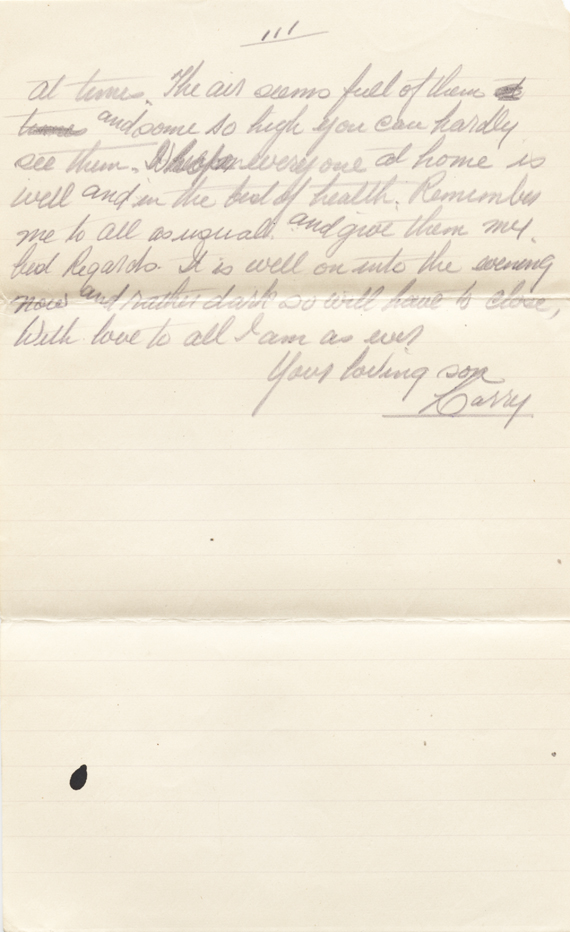 111
at times. The air seems full of them at
times and some so high you can hardly
see them. I hope everyone at home is
well and in the best of health. Remember
me to all as usual. and give them my
best Regards. It is well on into the evening
now and rather dark so will have to close,
With love to all I am as ever
Your loving son
Harry